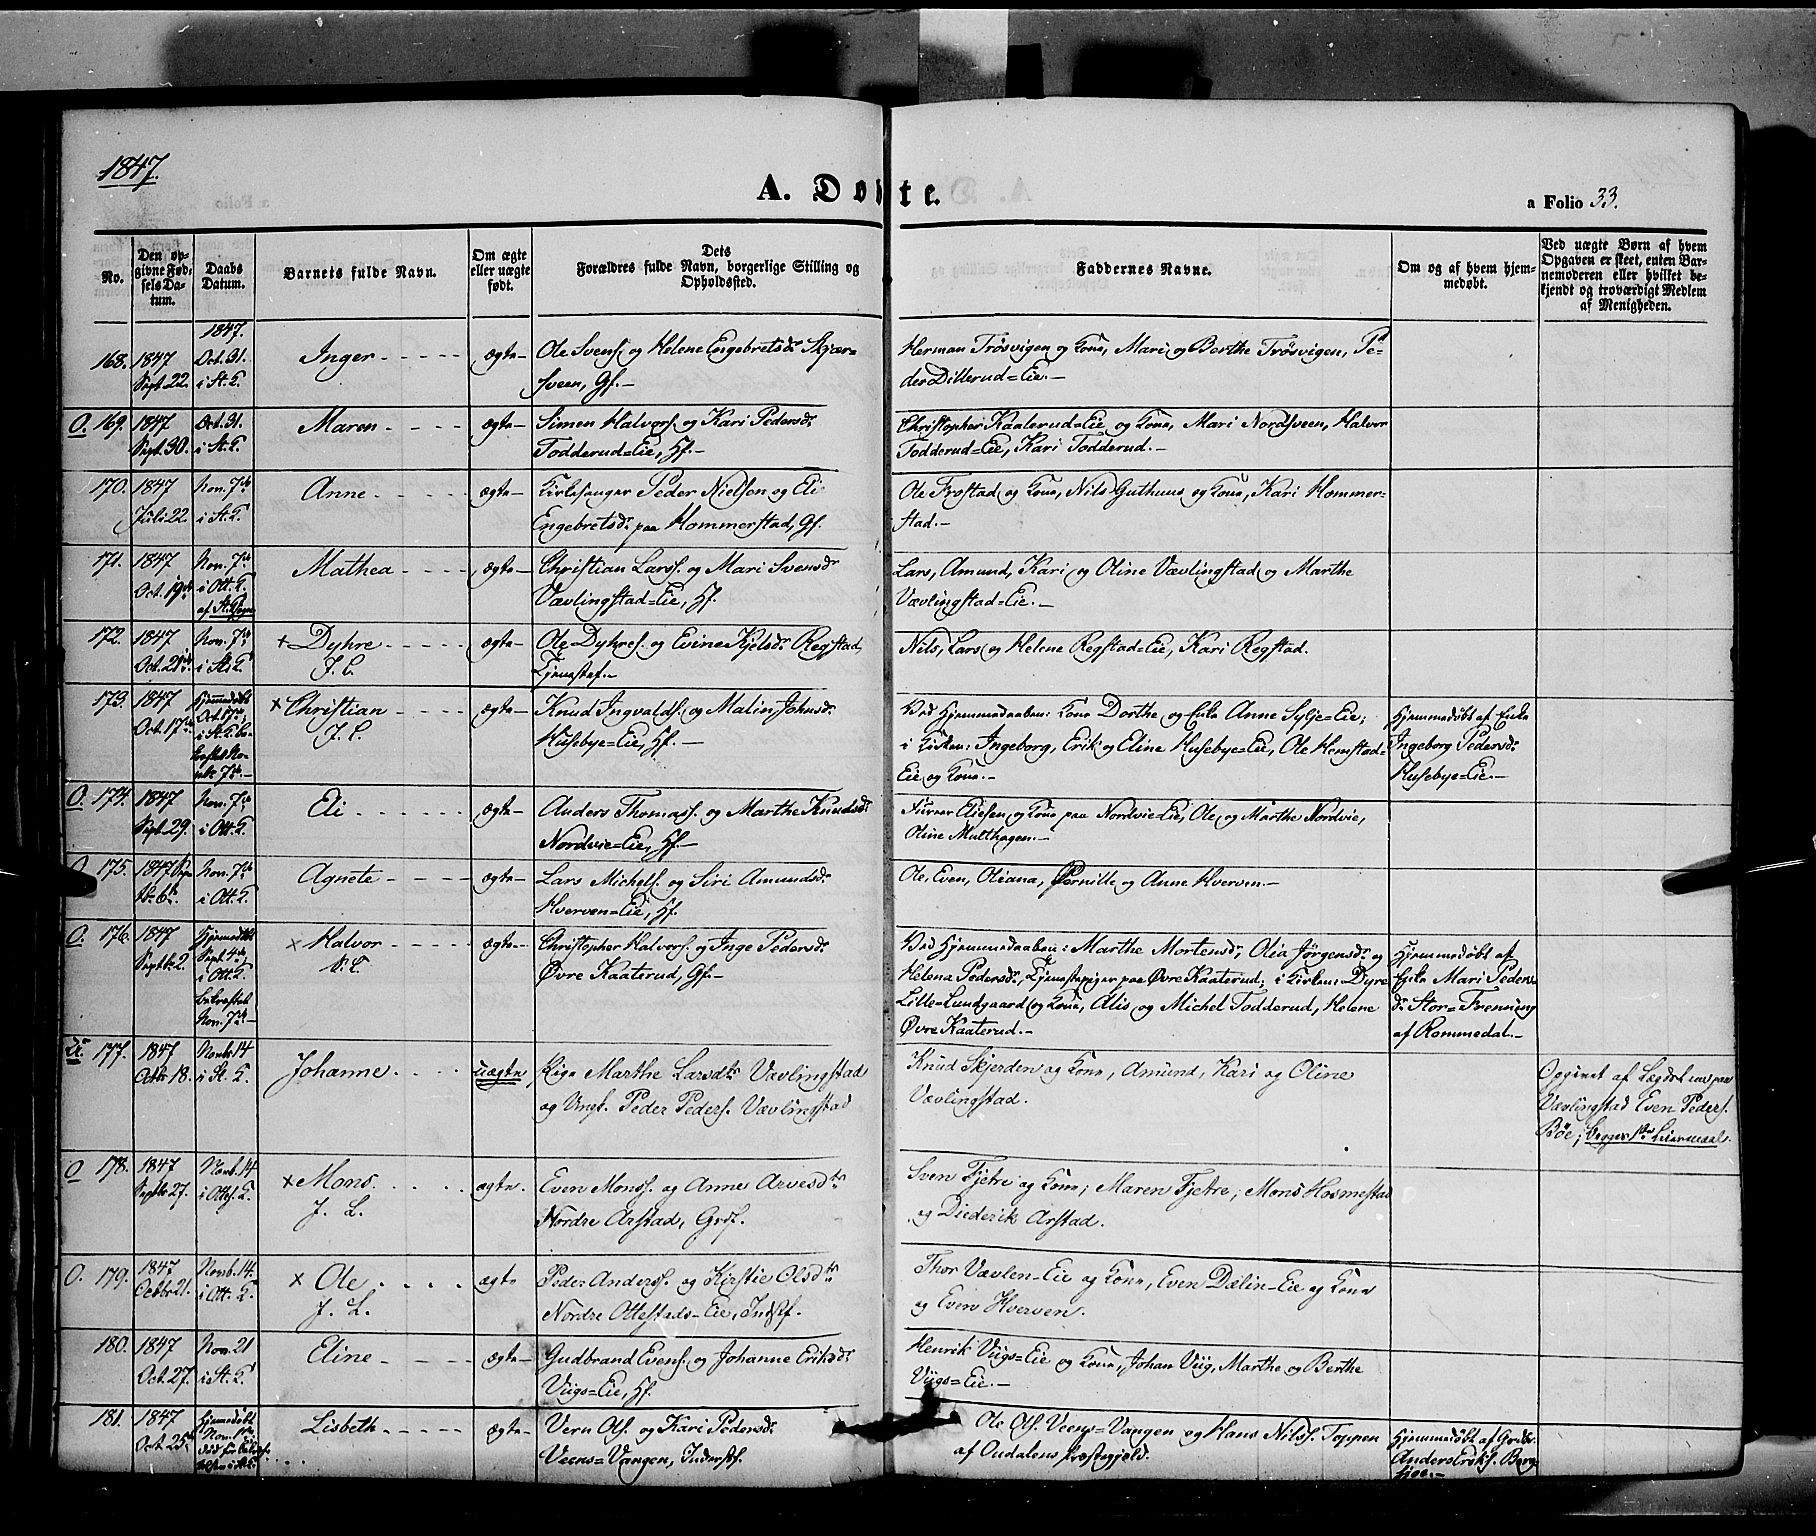 1847.
A. Døpte.
a Folio 33.
No.
Den opgivne Fødsels Datum.
Daabs Datum.
Barnets fulde Navn.
Om ægte eller uægte født.
Dets Forældres fulde Navn, borgerlige Stilling og Opholdssted.
Faddernes Navne.
Om og af hvem hjemmedøbt.
Ved uægte Børn af hvem Opgaven er skeet, enten Barnemoderen eller hvilket bekjendt og troværdigt Medlem af Menigheden.
1847.
168. 1847 Sept. 22. Oct. 31. i St. K. Inger ægte Ole Svens. og Helene Engebretsdr. Skjær-
sveen, Gf.
Herman Trøsvigen og Kone, Mari og Berthe Trøsvigen, Pe-
der Dillerud=Eie.
O. 169. 1847 Sept. 30. Oct. 31. i St. K. Maren ægte Simen Halvors. og Kari Pedersdr.
Todderud=Eie, Hf.
Christopher Kaaterud=Eie og Kone, Mari Nordsveen, Halvor
Todderud=Eie, Kari Todderud.
170. 1847 Juli 22. Nov. 7de i St. K. Anne ægte Kirkesanger Peder Nielsen og Eli
Engebretsdr. paa Hommerstad, Gf.
Ole Frostad og Kone, Nils Guthuus og Kone, Kari Hommer-
stad.
171. 1847 Oct. 19de Nov. 7de i Ott. K. Mathea ægte Christian Larss. og Mari Svensdr.
Vævlingstad=Eie, Hf.
Lars, Amund, Kari og Oline Vævlingstad og Marthe
Vævlingstad=Eie.
172. 1847 Oct. 21de Nov. 7de i St. K. + Dyhre
J. C.
ægte Ole Dyhres. og Evine Kjelsdr. Regstad,
Tjenestef.
Nils, Lars og Helene Regstad=Eie, Kari Regstad.
173. 1847 Oct. 17de Hjemmedøbt Oct. 17de, i St. K. be-
kræftet No-
vbr. 7de
x Christian
J. C.
ægte Knud Ingvalds. og Malin Johnsdr.
Husebye=Eie, Hf.
Ved Hjemmedaaben: Kone Dorthe og Enke Anne Sylje=Eie;
i Kirken: Ingeborg, Erik og Eline Husebye=Eie, Ole Hemstad=
Eie og Kone.
Hjemmedøbt af Enke
Ingeborg Pedersdr.
Husebye=Eie.
O. 174. 1847 Sept. 29. Nov. 7de i Ott. K. Eli ægte Anders Thomass. og Marthe Knudsdr.
Nordvie=Eie, Hf.
Eliesen og Kone paa Nordvie=Eie, Ole og Marthe Nordvie,
Oline Multhagen.
O. 175. 1847 Nov. 7de i Ott. K. Agnete ægte Lars Michels. og Siri Amundsdr.
Hverven=Eie, Hf.
Ole, Even, Oliana, Pernille og Anne Hverven.
O. 176. 1847 Septbr. 2. Hjemmedøbt Sept. 4de, i Ott. K.
bekræftet
Nov. 7de
x Halvor
ægte Christopher Halvors. og Inge Pedersdr.
Øvre Kaaterud, Gf.
Ved Hjemmedaaben: Marthe Mortensdr., Olia Jørgensdr. og
Helena Pedersdr., Tjenestepiger paa Øvre Kaaterud; i Kirken: Dyre
Lille=Lundgaard og Kone, Alis og Michel Todderud, Helene
Øvre Kaaterud.
Hjemmedøbt af
Enke Mari Peders-
dr. Stor=Frenning
af Rommedal.
U. 177. 1847 Octbr. 18. Novbr. 14 i St. K. Johanne uægte Pige Marthe Larsdtr. Vævlingstad
og Ungk. Peder Peders. Vævlingstad
Knud Skjerden og Kone, Amund, Kari og Oline
Vævlingstad.
Opgivet af paa
Vævlingstad Even Peders.
Bøe; begges 1ste Leiermaal.
O 178. 1847 Septbr. 27. Novb. 14 i Ottes. K. x Mons
J. L.
ægte. Even Monss. og Anne Arvesdtr.
Nordre Arstad, Grdf.
Sven Tjetre og Kone; Maren Tjetre; Mons Hosmestad
og Diederik Arstad.
O. 179. 1847 Octbr 21. Novb. 14. i Ott. K. x Ole
J. L.
ægte Peder Anders. og Kjrstie Olsdtr.
Nordre Ottestads=Eie, Indstf.
Thor Vævlen=Eie og Kone, Even Dælin=Eie og Kone
og Even Hverven.
180. 1847 Oct. 27. Nov. 21 i St. K Eline ægte Gudbrand Evens. og Johanne Eriksdr.
Viigs=Eie, Hf.
Henrik Viigs=Eie og Kone, Johan Viig, Marthe og Berthe
Viigs=Eie.
181. 1847 Oct. 25de Hjemmedøbt Nov.
Lisbeth ægte Vern Ols. og Kari Pedersdr.
Veens=Vangen, Inderstf.
Ole Ols. Veens=Vangen og Hans Nilss. Toppen
af Oudalens Præstegjeld.
Hjemmedøbt af Grdbr.
Anders Eriks. Berg-